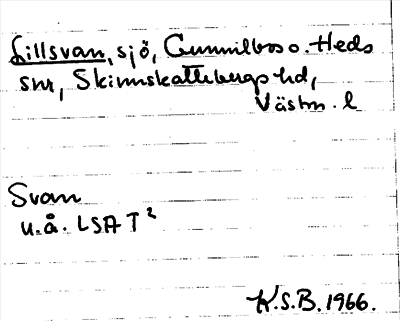 Lillsvan, sjö, Gunnilbo o. Heds
snr, Skinnskattebergs hd,
Västm. l
Svan
u.å. LSA T²
K.S.B. 1966.